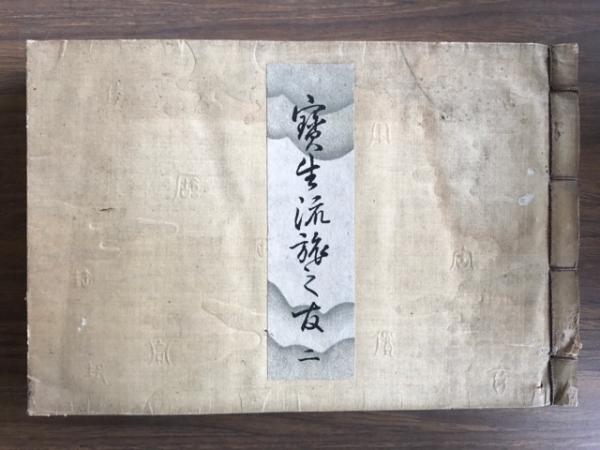 寶生流旅之友 二